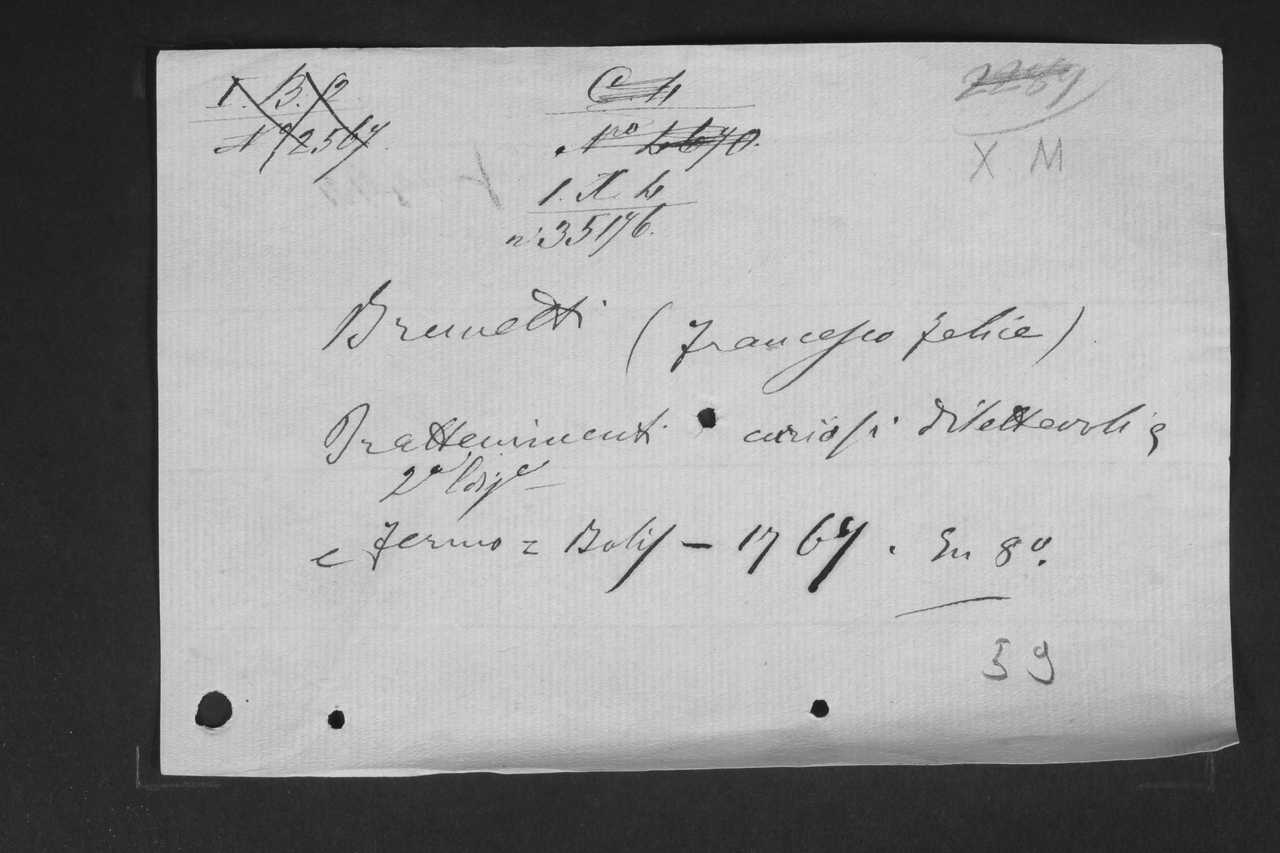 I. B. 9
Nº 2567
C. 4
Nro 4670.
1. X 4
nº 35176.
2267
X M
Brunetti (Francesco Felice)
Trattenimenti curiosi dilettevoli
2ª
e Fermo = Bolis - 1767. In 8º.
59